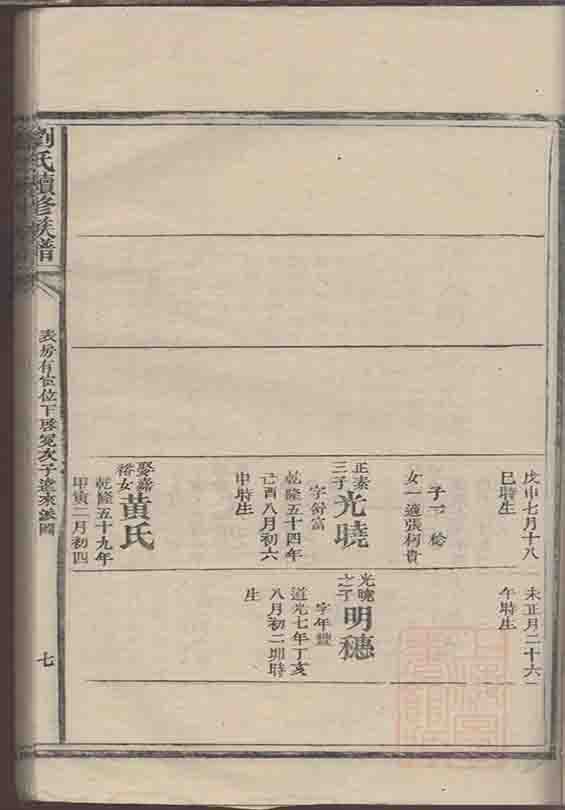 戊申七月十八
巳時生
子一 稔
女一適張柯貴
正素
三子
光曉
字舒富
乾隆五十四年
己酉八月初六
申時生
娶嘉
裕女
黃氏
乾隆五十九年
甲寅二月初四
未正月二十六
午時生
光曉
之子
明穗
字年豐
道光七年丁亥
八月初二卯時
生
劉氏續修族譜
表房有宦位下啓冕次子遠來派圖
七